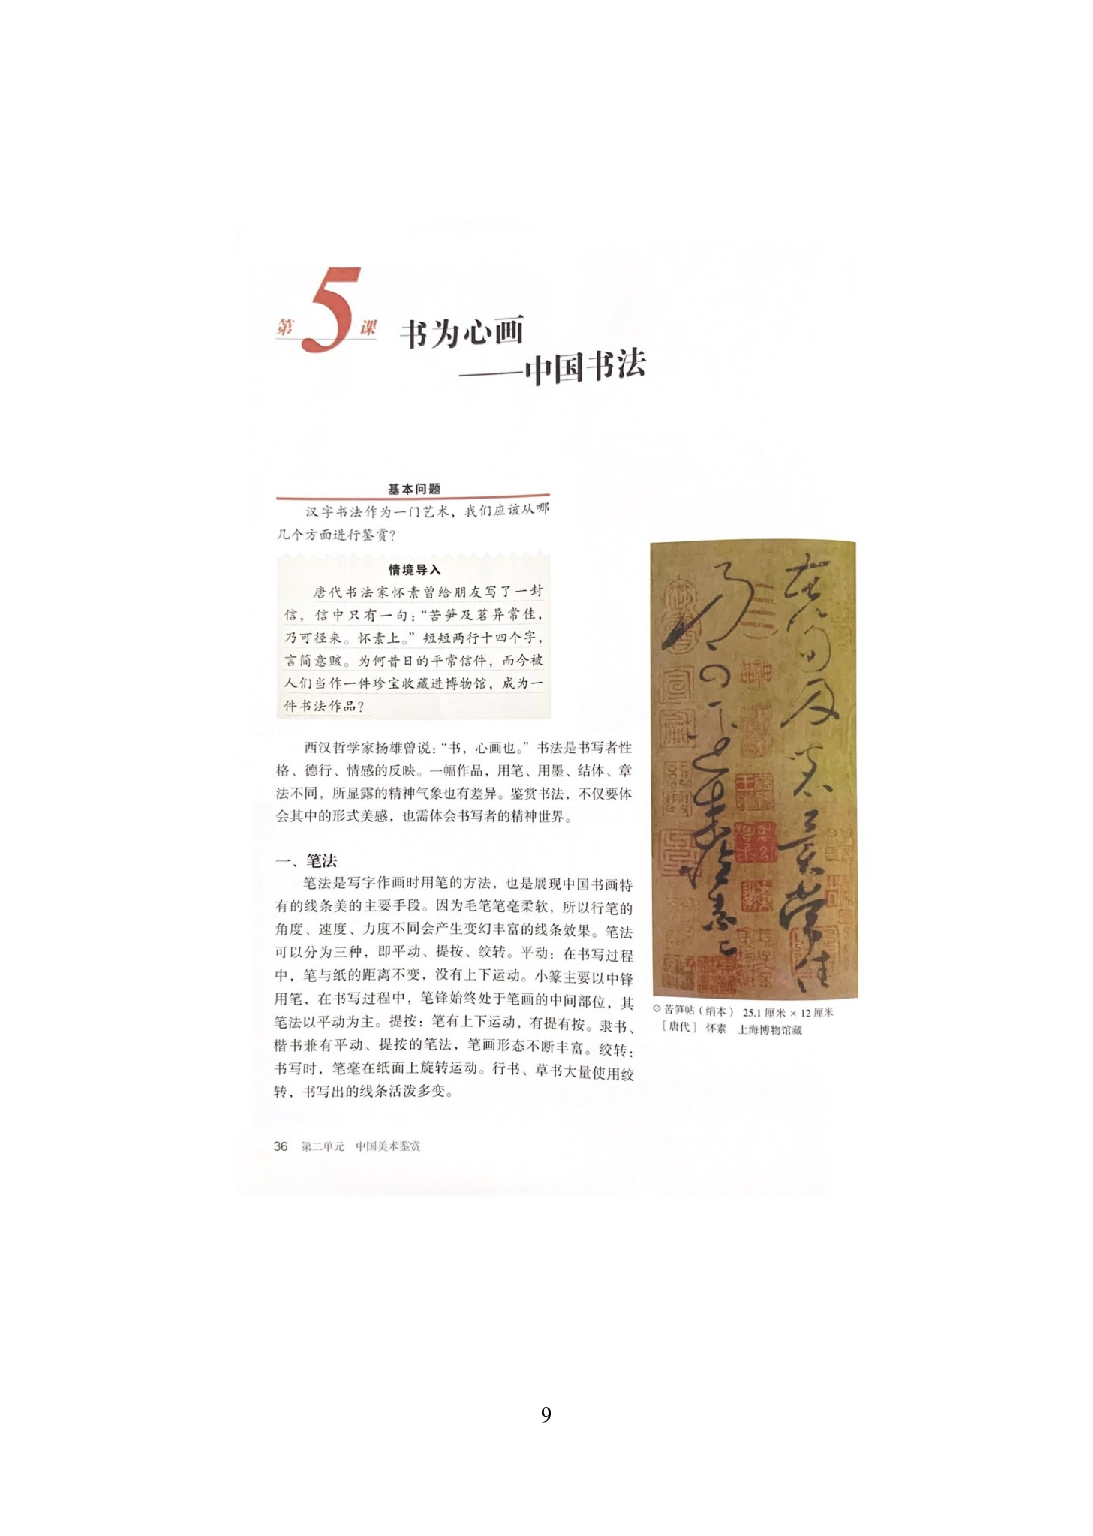 第5课 书为心画
——中国书法
基本问题
汉字书法作为一门艺术，我们应该从哪
几个方面进行鉴赏？
情境导入
唐代书法家怀素曾给朋友写了一封
信，信中只有一句：“苦笋及茗异常佳，
乃可径来。怀素上。”短短两行十四个字，
言简意赅。为何昔日的平常信件，而今被
人们当作一件珍宝收藏进博物馆，成为一
件书法作品？
西汉哲学家扬雄曾说：“书，心画也。”书法是书写者性
格、德行、情感的反映。一幅作品，用笔、用墨、结体、章
法不同，所显露的精神气象也有差异。鉴赏书法，不仅要体
会其中的形式美感，也需体会书写者的精神世界。
一、笔法
笔法是写字作画时用笔的方法，也是展现中国书画特
有的线条美的主要手段。因为毛笔笔毫柔软，所以行笔的
角度、速度、力度不同会产生变幻丰富的线条效果。笔法
可以分为三种，即平动、提按、绞转。平动：在书写过程
中，笔与纸的距离不变，没有上下运动。小篆主要以中锋
用笔，在书写过程中，笔锋始终处于笔画的中间部位，其
笔法以平动为主。提按：笔有上下运动，有提有按。隶书、
楷书兼有平动、提按的笔法，笔画形态不断丰富。绞转：
书写时，笔毫在纸面上旋转运动。行书、草书大量使用绞
转，书写出的线条活泼多变。
苦笋及茗异常佳
乃可径来怀素上
苦笋帖（绢本） 25.1厘米×12厘米
［唐代］ 怀素 上海博物馆藏
36 第二单元 中国美术鉴赏
9